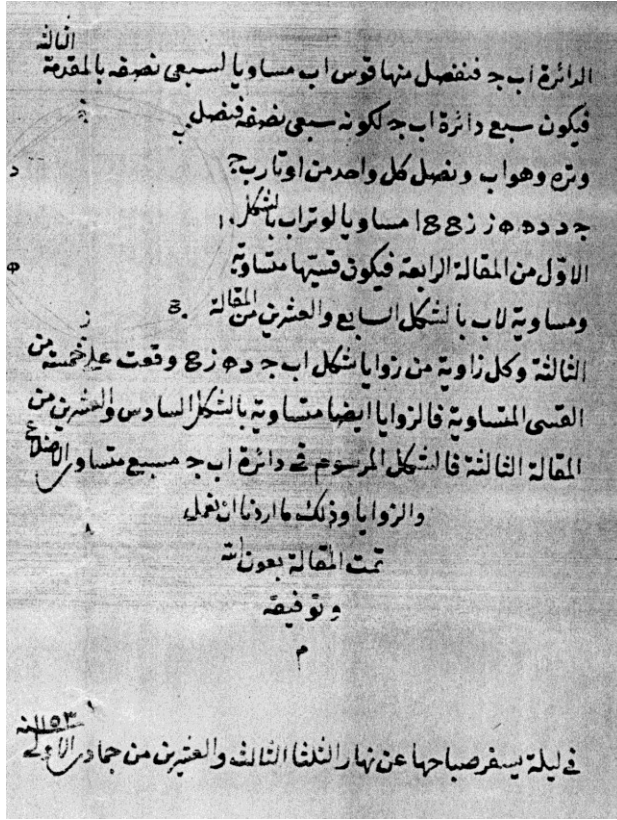 الثالثة
الدائرة اب ج فنفصل منها قوس اب مساويا لسبعى نصفه بالمقدمة
فيكون سبع دائرة اب ج لكونه سبعى نصفه فنصل
ب
وتره وهو اب ونصل كل واحد من اوتار ب ج
د
ج د د ه ه ز ز ح ح ا مساويا لوتر اب بالشكل
ا
الاول من المقالة الرابعة فيكون قسيها متساوية
ه
ومساوية لاب بالشكل السابع والعشرين من المقالة
ح
ز
الثالثة وكل زاوية من زوايا شكل اب ج د ه ز ح وقعت على خمسة من
القسى المتساوية فالزوايا ايضا متساوية بالشكل السادس والعشرين من
المقالة الثالثة فالشكل المرسوم فى دائرة اب ج مسبع متساوى الاضلاع
والزوايا وذلك ما اردنا ان نعمل
تمت المقالة بعون الله
وتوفيقه
م
فى ليلة يسفر صباحها عن نهار الثلثا الثالثه والعشرين من جمادى الاولى
سنه ١١٥٣